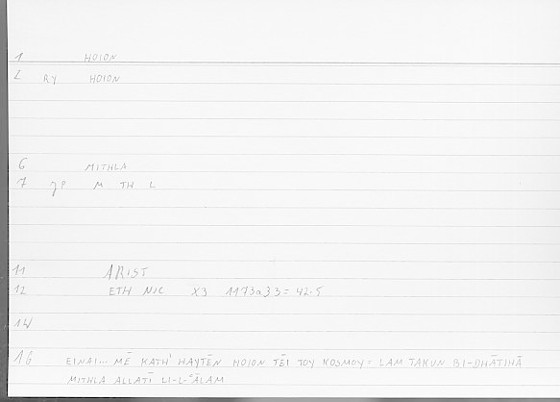 1 HOION
2 RY HOION
6 MITHLA
7 M TH L
11 ARIST
12 ETH NIC X3 1173a33 = 42.5
14
16 EINAI... MĒ KATH' HAYTĒN HOION TĒI TOY KOSMOY : LAM TAKUN BI-DHĀTIHĀ
MITHLA ALLATĪ LI-L-ʿĀLAM